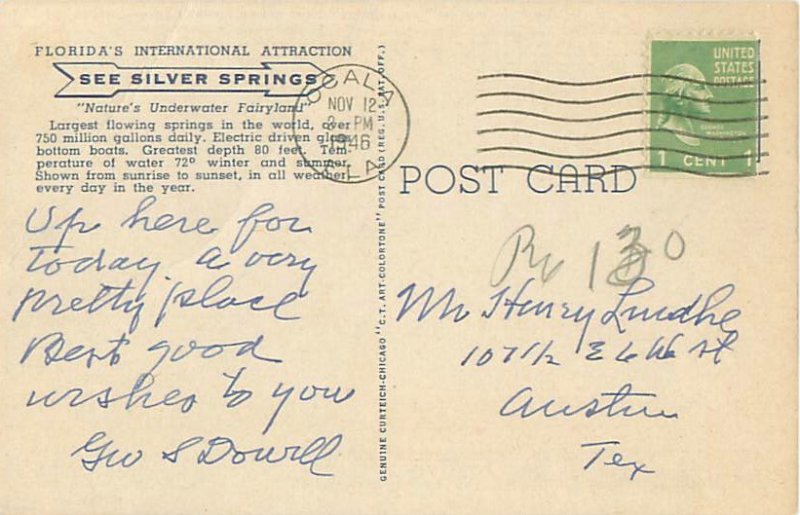 FLORIDA'S INTERNATIONAL ATTRACTION
SEE SILVER SPRINGS
"Nature's Underwater Fairyland"
Largest flowing springs in the world, over
750 million gallons daily. Electric driven glass
bottom boats. Greatest depth 80 feet. Tem-
perature of water 72° winter and summer.
Shown from sunrise to sunset, in all weather
every day in the year.
Up here for
today a very
pretty place
Best good
wishes to you
Geo S Dowell
GENUINE CURTEICH-CHICAGO "C.T. ART-COLORTONE" POST CARD (REG. U.S. PAT. OFF.)
OCALA
NOV 12
2 PM
1946
FLA
UNITED
STATES
POSTAGE
GEORGE
WASHINGTON
1 CENT 1
POST CARD
Mr Henry
107½ E 6th St
Austin
Tex